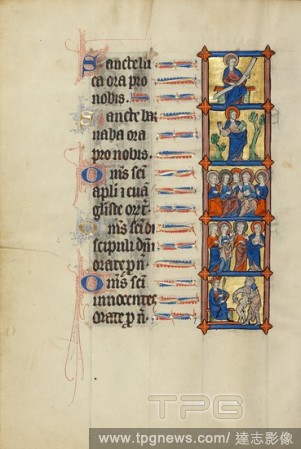 Sancte lu
ca ora pro
nobis.
Sancte bar
naba ora
pro nobis.
Om̄s sc̄i
apl̄i i euā
gliste or̄t.
Om̄s sc̄i di
scipuli dn̄i
orate ꝑ n̄.
Om̄s sc̄i
innocentes
orate ꝑ n̄.
TPG
www.tpgnews.com/達志影像